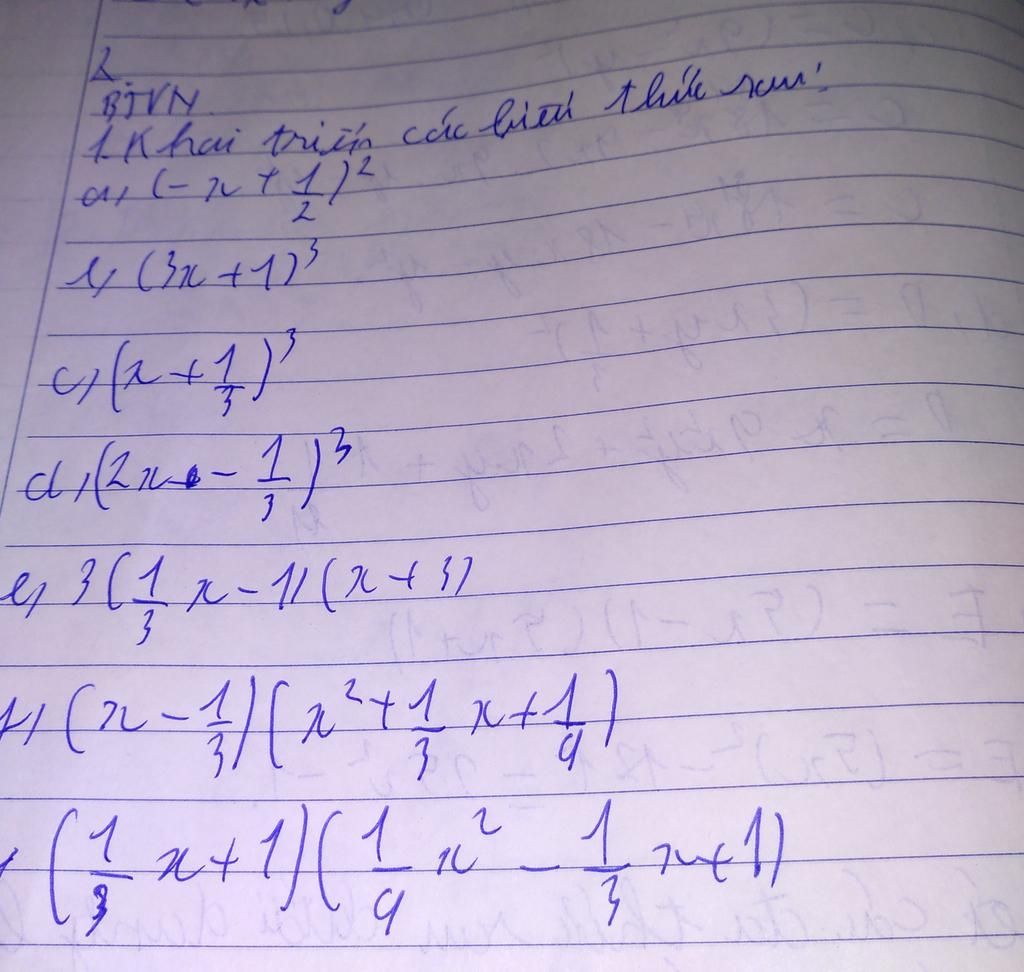 2.
BTVN
1. Khai triển các biểu thức sau:
a, (-x + 1/2)²
b, (3x + 1)³
c, (x + 1/3)³
d, (2x - 1/3)³
e, 3(1/3 x - 1)(x + 3)
f, (x - 1/3)(x² + 1/3 x + 1/9)
(1/3 x + 1)(1/9 x² - 1/3 x + 1)